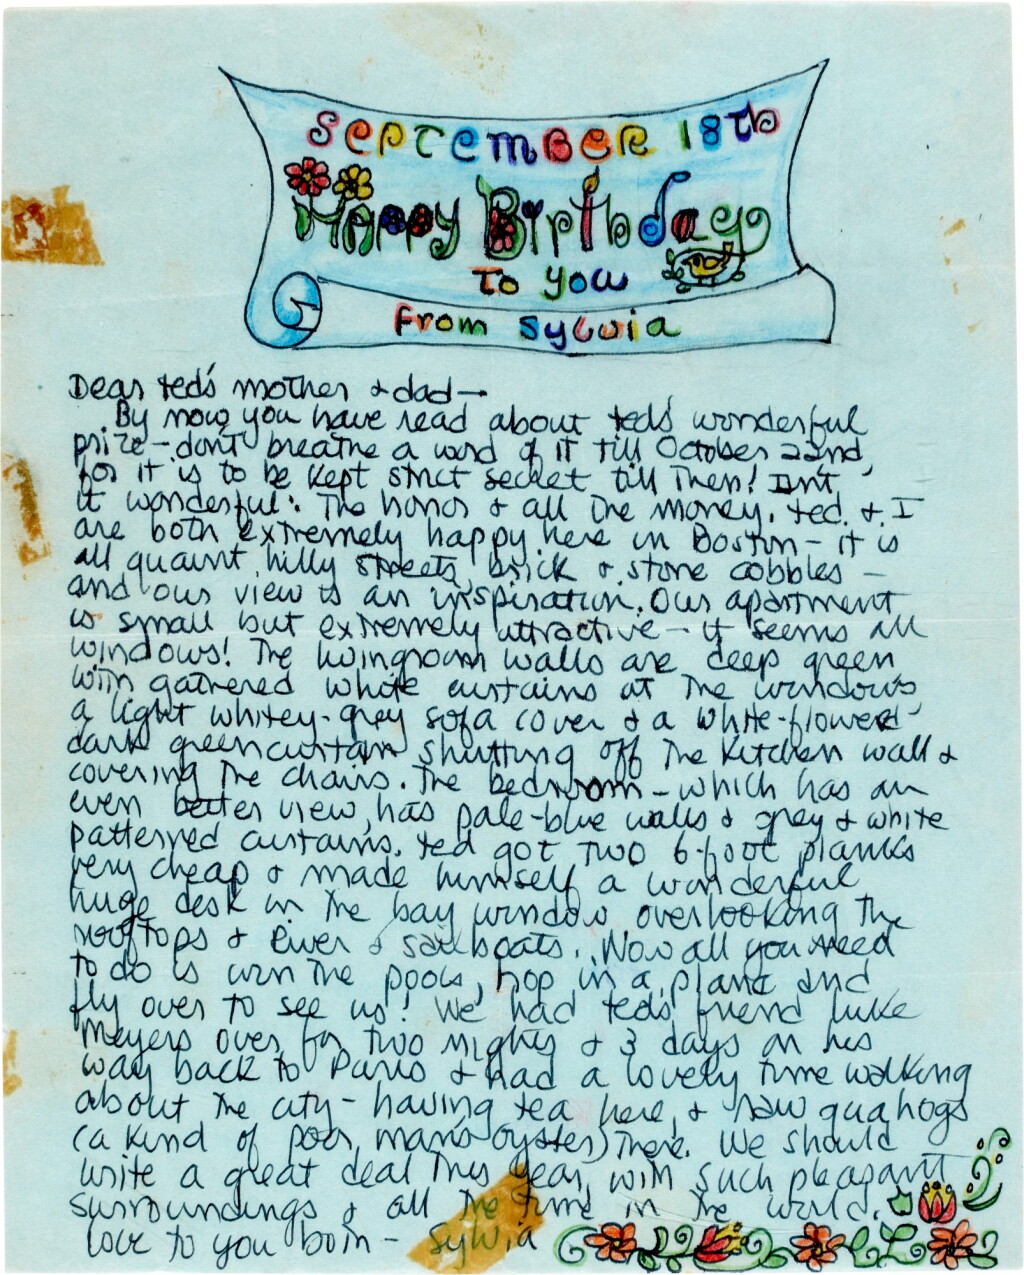 SEPTEMBER 18Th
Happy Birthday
To you
From Sylvia
Dear Ted's mother & dad —
By now you have read about Ted's wonderful
prize — don't breathe a word of it till October 22nd
for it is to be kept strict secret till then! Isn't
it wonderful: The honor & all the money. Ted & I
are both extremely happy here in Boston — it is
all quaint, hilly streets, brick & stone cobbles —
and our view is an inspiration. Our apartment
is small but extremely attractive — it seems all
windows! The livingroom walls are deep green
with gathered white curtains at the windows
a light whitey-grey sofa cover & a white-flowered
dark green curtain shutting off the kitchen wall &
covering the chairs. The bedroom — which has an
even better view, has pale-blue walls & grey & white
patterned curtains. Ted got two 6-foot planks
very cheap & made himself a wonderful
huge desk in the bay window overlooking the
rooftops & river & sailboats. Now all you need
to do is win the pools, hop in a plane and
fly over to see us! We had Ted's friend Luke
Meyers over for two nights & 3 days on his
way back to Paris & had a lovely time walking
about the city — having tea here, & raw quahogs
(a kind of poor man's oyster) there. We should
write a great deal this year, with such pleasant
surroundings & all the time in the world.
Love to you both — Sylvia